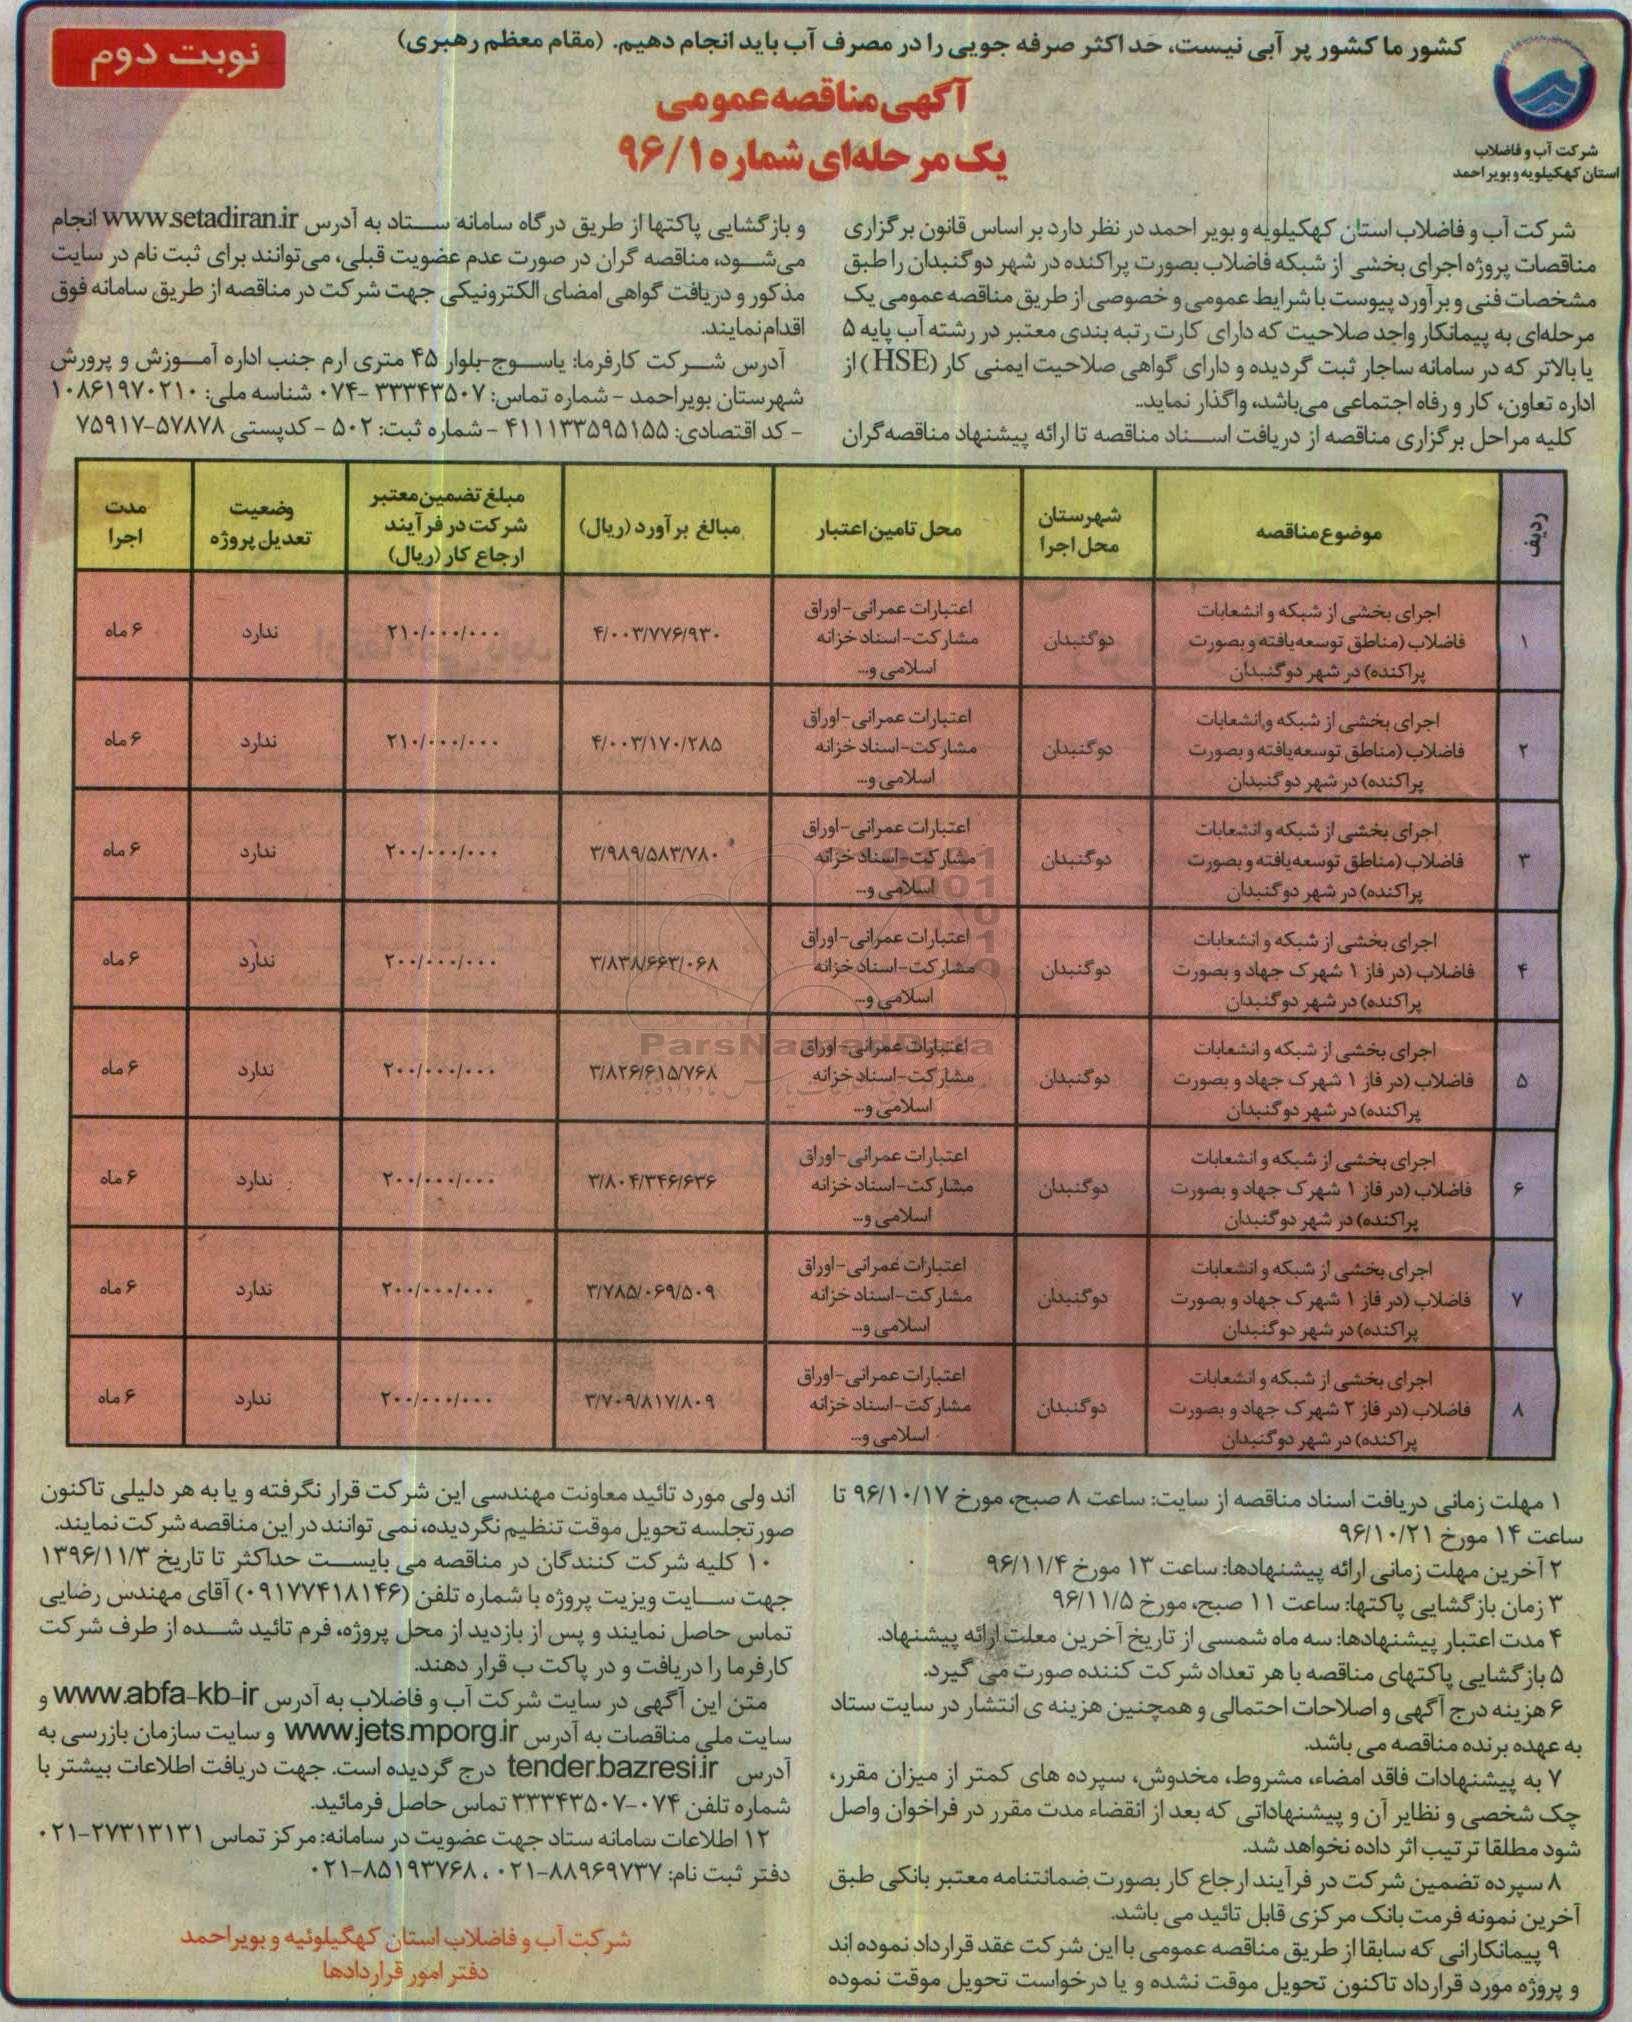 کشور ما کشور پر آبی نیست، حداکثر صرفه جویی را در مصرف آب باید انجام دهیم. (مقام معظم رهبری)
نوبت دوم
آگهی مناقصه عمومی
یک مرحله‌ای شماره ۹۶/۱
شرکت آب و فاضلاب
استان کهکیلویه و بویر احمد
شرکت آب و فاضلاب استان کهکیلویه و بویر احمد در نظر دارد بر اساس قانون برگزاری
مناقصات پروژه اجرای بخشی از شبکه فاضلاب بصورت پراکنده در شهر دوگنبدان را طبق
مشخصات فنی و برآورد پیوست با شرایط عمومی و خصوصی از طریق مناقصه عمومی یک
مرحله‌ای به پیمانکار واجد صلاحیت که دارای کارت رتبه بندی معتبر در رشته آب پایه ۵
یا بالاتر که در سامانه ساجار ثبت گردیده و دارای گواهی صلاحیت ایمنی کار (HSE) از
اداره تعاون، کار و رفاه اجتماعی می‌باشد، واگذار نماید..
کلیه مراحل برگزاری مناقصه از دریافت اسناد مناقصه تا ارائه پیشنهاد مناقصه‌گران
و بازگشایی پاکتها از طریق درگاه سامانه ستاد به آدرس www.setadiran.ir انجام
می‌شود، مناقصه گران در صورت عدم عضویت قبلی، می‌توانند برای ثبت نام در سایت
مذکور و دریافت گواهی امضای الکترونیکی جهت شرکت در مناقصه از طریق سامانه فوق
اقدام نمایند.
آدرس شرکت کارفرما: یاسوج-بلوار ۴۵ متری ارم جنب اداره آموزش و پرورش
شهرستان بویراحمد - شماره تماس: ۳۳۳۴۳۵۰۷ -۰۷۴ شناسه ملی: ۱۰۸۶۱۹۷۰۲۱۰
- کد اقتصادی: ۴۱۱۱۳۳۵۹۵۱۵۵ - شماره ثبت: ۵۰۲ - کدپستی ۵۷۸۷۸-۷۵۹۱۷
ردیف
موضوع مناقصه
شهرستان
محل اجرا
محل تامین اعتبار
مبالغ برآورد (ریال)
مبلغ تضمین معتبر
شرکت در فرآیند
ارجاع کار (ریال)
وضعیت
تعدیل پروژه
مدت
اجرا
۱
اجرای بخشی از شبکه و انشعابات
فاضلاب (مناطق توسعه یافته و بصورت
پراکنده) در شهر دوگنبدان
دوگنبدان
اعتبارات عمرانی-اوراق
مشارکت-اسناد خزانه
اسلامی و...
۴/۰۰۳/۷۷۶/۹۳۰
۲۱۰/۰۰۰/۰۰۰
ندارد
۶ ماه
۲
اجرای بخشی از شبکه و انشعابات
فاضلاب (مناطق توسعه یافته و بصورت
پراکنده) در شهر دوگنبدان
دوگنبدان
اعتبارات عمرانی-اوراق
مشارکت-اسناد خزانه
اسلامی و...
۴/۰۰۳/۱۷۰/۲۸۵
۲۱۰/۰۰۰/۰۰۰
ندارد
۶ ماه
۳
اجرای بخشی از شبکه و انشعابات
فاضلاب (مناطق توسعه یافته و بصورت
پراکنده) در شهر دوگنبدان
دوگنبدان
اعتبارات عمرانی-اوراق
مشارکت-اسناد خزانه
اسلامی و...
۳/۹۸۹/۵۸۳/۷۸۰
۲۰۰/۰۰۰/۰۰۰
ندارد
۶ ماه
۴
اجرای بخشی از شبکه و انشعابات
فاضلاب (در فاز ۱ شهرک جهاد و بصورت
پراکنده) در شهر دوگنبدان
دوگنبدان
اعتبارات عمرانی-اوراق
مشارکت-اسناد خزانه
اسلامی و...
۳/۸۳۸/۶۶۳/۰۶۸
۲۰۰/۰۰۰/۰۰۰
ندارد
۶ ماه
۵
اجرای بخشی از شبکه و انشعابات
فاضلاب (در فاز ۱ شهرک جهاد و بصورت
پراکنده) در شهر دوگنبدان
دوگنبدان
اعتبارات عمرانی-اوراق
مشارکت-اسناد خزانه
اسلامی و...
۳/۸۲۶/۶۱۵/۷۶۸
۲۰۰/۰۰۰/۰۰۰
ندارد
۶ ماه
۶
اجرای بخشی از شبکه و انشعابات
فاضلاب (در فاز ۱ شهرک جهاد و بصورت
پراکنده) در شهر دوگنبدان
دوگنبدان
اعتبارات عمرانی-اوراق
مشارکت-اسناد خزانه
اسلامی و...
۳/۸۰۴/۳۴۶/۶۳۶
۲۰۰/۰۰۰/۰۰۰
ندارد
۶ ماه
۷
اجرای بخشی از شبکه و انشعابات
فاضلاب (در فاز ۱ شهرک جهاد و بصورت
پراکنده) در شهر دوگنبدان
دوگنبدان
اعتبارات عمرانی-اوراق
مشارکت-اسناد خزانه
اسلامی و...
۳/۷۸۵/۰۶۹/۵۰۹
۲۰۰/۰۰۰/۰۰۰
ندارد
۶ ماه
۸
اجرای بخشی از شبکه و انشعابات
فاضلاب (در فاز ۲ شهرک جهاد و بصورت
پراکنده) در شهر دوگنبدان
دوگنبدان
اعتبارات عمرانی-اوراق
مشارکت-اسناد خزانه
اسلامی و...
۳/۷۰۹/۸۱۷/۸۰۹
۲۰۰/۰۰۰/۰۰۰
ندارد
۶ ماه
ParsNamadData
۱ مهلت زمانی دریافت اسناد مناقصه از سایت: ساعت ۸ صبح، مورخ ۹۶/۱۰/۱۷ تا
ساعت ۱۴ مورخ ۹۶/۱۰/۲۱
۲ آخرین مهلت زمانی ارائه پیشنهادها: ساعت ۱۳ مورخ ۹۶/۱۱/۴
۳ زمان بازگشایی پاکتها: ساعت ۱۱ صبح، مورخ ۹۶/۱۱/۵
۴ مدت اعتبار پیشنهادها: سه ماه شمسی از تاریخ آخرین معلت ارائه پیشنهاد.
۵ بازگشایی پاکتهای مناقصه با هر تعداد شرکت کننده صورت می گیرد.
۶ هزینه درج آگهی و اصلاحات احتمالی و همچنین هزینه ی انتشار در سایت ستاد
به عهده برنده مناقصه می باشد.
۷ به پیشنهادات فاقد امضاء، مشروط، مخدوش، سپرده های کمتر از میزان مقرر،
چک شخصی و نظایر آن و پیشنهاداتی که بعد از انقضاء مدت مقرر در فراخوان واصل
شود مطلقا ترتیب اثر داده نخواهد شد.
۸ سپرده تضمین شرکت در فرآیند ارجاع کار بصورت ضمانتنامه معتبر بانکی طبق
آخرین نمونه فرمت بانک مرکزی قابل تائید می باشد.
۹ پیمانکارانی که سابقا از طریق مناقصه عمومی با این شرکت عقد قرارداد نموده اند
و پروژه مورد قرارداد تاکنون تحویل موقت نشده و یا درخواست تحویل موقت نموده
اند ولی مورد تائید معاونت مهندسی این شرکت قرار نگرفته و یا به هر دلیلی تاکنون
صورتجلسه تحویل موقت تنظیم نگردیده، نمی توانند در این مناقصه شرکت نمایند.
۱۰ کلیه شرکت کنندگان در مناقصه می بایست حداکثر تا تاریخ ۱۳۹۶/۱۱/۳
جهت سایت ویزیت پروژه با شماره تلفن (۰۹۱۷۷۴۱۸۱۴۶) آقای مهندس رضایی
تماس حاصل نمایند و پس از بازدید از محل پروژه، فرم تائید شده از طرف شرکت
کارفرما را دریافت و در پاکت ب قرار دهند.
متن این آگهی در سایت شرکت آب و فاضلاب به آدرس www.abfa-kb-ir و
سایت ملی مناقصات به آدرس www.jets.mporg.ir و سایت سازمان بازرسی به
آدرس tender.bazresi.ir درج گردیده است. جهت دریافت اطلاعات بیشتر با
شماره تلفن ۰۷۴-۳۳۳۴۳۵۰۷ تماس حاصل فرمائید.
۱۲ اطلاعات سامانه ستاد جهت عضویت در سامانه: مرکز تماس ۲۷۳۱۳۱۳۱-۰۲۱
دفتر ثبت نام: ۸۸۹۶۹۷۳۷-۰۲۱ ، ۸۵۱۹۳۷۶۸-۰۲۱
شرکت آب و فاضلاب استان کهگیلوئیه و بویراحمد
دفتر امور قراردادها